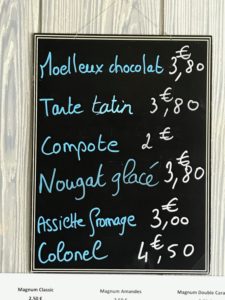 Moelleux chocolat 3,80 €
Tarte tatin 3,80 €
Compote 2 €
Nougat glacé 3,80 €
Assiette fromage 3,00 €
Colonel 4,50 €
Magnum Classic Magnum Amandes Magnum Double Cara
2,50 €